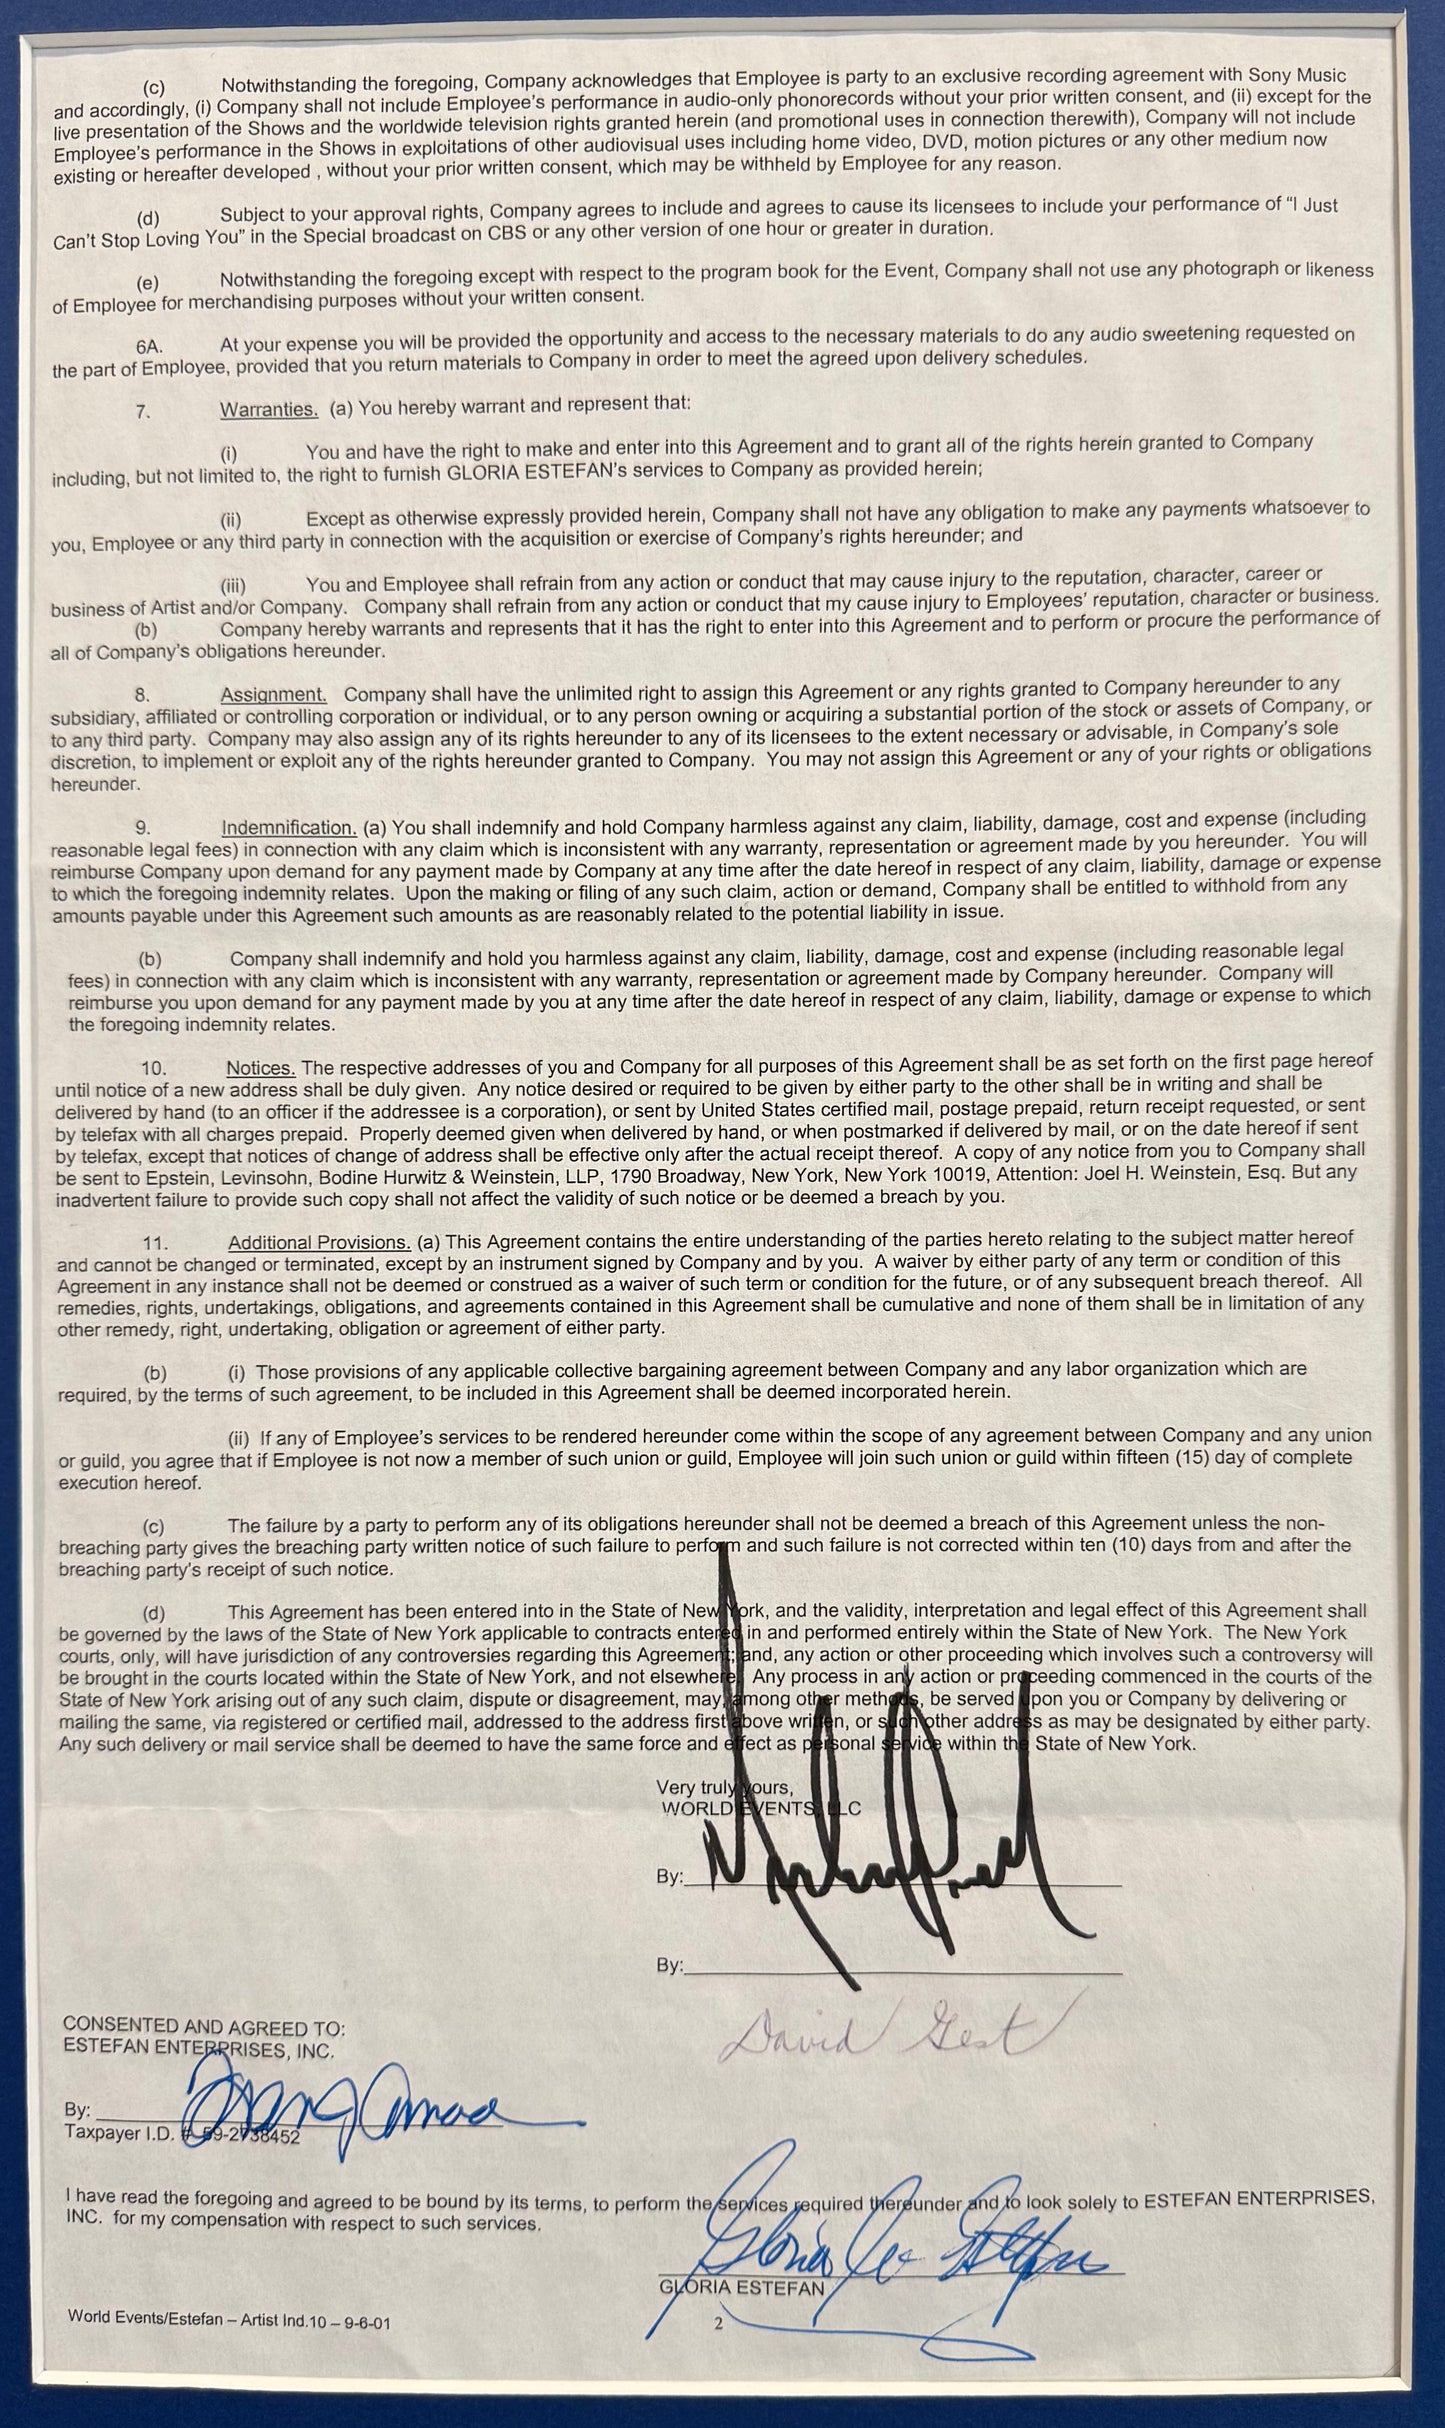 (c) Notwithstanding the foregoing, Company acknowledges that Employee is party to an exclusive recording agreement with Sony Music
and accordingly, (i) Company shall not include Employee's performance in audio-only phonorecords without your prior written consent, and (ii) except for the
live presentation of the Shows and the worldwide television rights granted herein (and promotional uses in connection therewith), Company will not include
Employee's performance in the Shows in exploitations of other audiovisual uses including home video, DVD, motion pictures or any other medium now
existing or hereafter developed , without your prior written consent, which may be withheld by Employee for any reason.
(d) Subject to your approval rights, Company agrees to include and agrees to cause its licensees to include your performance of "I Just
Can't Stop Loving You" in the Special broadcast on CBS or any other version of one hour or greater in duration.
(e) Notwithstanding the foregoing except with respect to the program book for the Event, Company shall not use any photograph or likeness
of Employee for merchandising purposes without your written consent.
6A. At your expense you will be provided the opportunity and access to the necessary materials to do any audio sweetening requested on
the part of Employee, provided that you return materials to Company in order to meet the agreed upon delivery schedules.
7. Warranties. (a) You hereby warrant and represent that:
(i) You and have the right to make and enter into this Agreement and to grant all of the rights herein granted to Company
including, but not limited to, the right to furnish GLORIA ESTEFAN's services to Company as provided herein;
(ii) Except as otherwise expressly provided herein, Company shall not have any obligation to make any payments whatsoever to
you, Employee or any third party in connection with the acquisition or exercise of Company's rights hereunder; and
(iii) You and Employee shall refrain from any action or conduct that may cause injury to the reputation, character, career or
business of Artist and/or Company. Company shall refrain from any action or conduct that my cause injury to Employees' reputation, character or business.
(b) Company hereby warrants and represents that it has the right to enter into this Agreement and to perform or procure the performance of
all of Company's obligations hereunder.
8. Assignment. Company shall have the unlimited right to assign this Agreement or any rights granted to Company hereunder to any
subsidiary, affiliated or controlling corporation or individual, or to any person owning or acquiring a substantial portion of the stock or assets of Company, or
to any third party. Company may also assign any of its rights hereunder to any of its licensees to the extent necessary or advisable, in Company's sole
discretion, to implement or exploit any of the rights hereunder granted to Company. You may not assign this Agreement or any of your rights or obligations
hereunder.
9. Indemnification. (a) You shall indemnify and hold Company harmless against any claim, liability, damage, cost and expense (including
reasonable legal fees) in connection with any claim which is inconsistent with any warranty, representation or agreement made by you hereunder. You will
reimburse Company upon demand for any payment made by Company at any time after the date hereof in respect of any claim, liability, damage or expense
to which the foregoing indemnity relates. Upon the making or filing of any such claim, action or demand, Company shall be entitled to withhold from any
amounts payable under this Agreement such amounts as are reasonably related to the potential liability in issue.
(b) Company shall indemnify and hold you harmless against any claim, liability, damage, cost and expense (including reasonable legal
fees) in connection with any claim which is inconsistent with any warranty, representation or agreement made by Company hereunder. Company will
reimburse you upon demand for any payment made by you at any time after the date hereof in respect of any claim, liability, damage or expense to which
the foregoing indemnity relates.
10. Notices. The respective addresses of you and Company for all purposes of this Agreement shall be as set forth on the first page hereof
until notice of a new address shall be duly given. Any notice desired or required to be given by either party to the other shall be in writing and shall be
delivered by hand (to an officer if the addressee is a corporation), or sent by United States certified mail, postage prepaid, return receipt requested, or sent
by telefax with all charges prepaid. Properly deemed given when delivered by hand, or when postmarked if delivered by mail, or on the date hereof if sent
by telefax, except that notices of change of address shall be effective only after the actual receipt thereof. A copy of any notice from you to Company shall
be sent to Epstein, Levinsohn, Bodine Hurwitz & Weinstein, LLP, 1790 Broadway, New York, New York 10019, Attention: Joel H. Weinstein, Esq. But any
inadvertent failure to provide such copy shall not affect the validity of such notice or be deemed a breach by you.
11. Additional Provisions. (a) This Agreement contains the entire understanding of the parties hereto relating to the subject matter hereof
and cannot be changed or terminated, except by an instrument signed by Company and by you. A waiver by either party of any term or condition of this
Agreement in any instance shall not be deemed or construed as a waiver of such term or condition for the future, or of any subsequent breach thereof. All
remedies, rights, undertakings, obligations, and agreements contained in this Agreement shall be cumulative and none of them shall be in limitation of any
other remedy, right, undertaking, obligation or agreement of either party.
(b) (i) Those provisions of any applicable collective bargaining agreement between Company and any labor organization which are
required, by the terms of such agreement, to be included in this Agreement shall be deemed incorporated herein.
(ii) If any of Employee's services to be rendered hereunder come within the scope of any agreement between Company and any union
or guild, you agree that if Employee is not now a member of such union or guild, Employee will join such union or guild within fifteen (15) day of complete
execution hereof.
(c) The failure by a party to perform any of its obligations hereunder shall not be deemed a breach of this Agreement unless the non-
breaching party gives the breaching party written notice of such failure to perform and such failure is not corrected within ten (10) days from and after the
breaching party's receipt of such notice.
(d) This Agreement has been entered into in the State of New York, and the validity, interpretation and legal effect of this Agreement shall
be governed by the laws of the State of New York applicable to contracts entered in and performed entirely within the State of New York. The New York
courts, only, will have jurisdiction of any controversies regarding this Agreement; and, any action or other proceeding which involves such a controversy will
be brought in the courts located within the State of New York, and not elsewhere. Any process in any action or proceeding commenced in the courts of the
State of New York arising out of any such claim, dispute or disagreement, may, among other methods, be served upon you or Company by delivering or
mailing the same, via registered or certified mail, addressed to the address first above written, or such other address as may be designated by either party.
Any such delivery or mail service shall be deemed to have the same force and effect as personal service within the State of New York.
Very truly yours,
WORLD EVENTS, LLC
By:
By:
David Gest
CONSENTED AND AGREED TO:
ESTEFAN ENTERPRISES, INC.
By:
Taxpayer I.D. # 59-2738452
I have read the foregoing and agreed to be bound by its terms, to perform the services required thereunder and to look solely to ESTEFAN ENTERPRISES,
INC. for my compensation with respect to such services.
GLORIA ESTEFAN
World Events/Estefan – Artist Ind.10 – 9-6-01
2